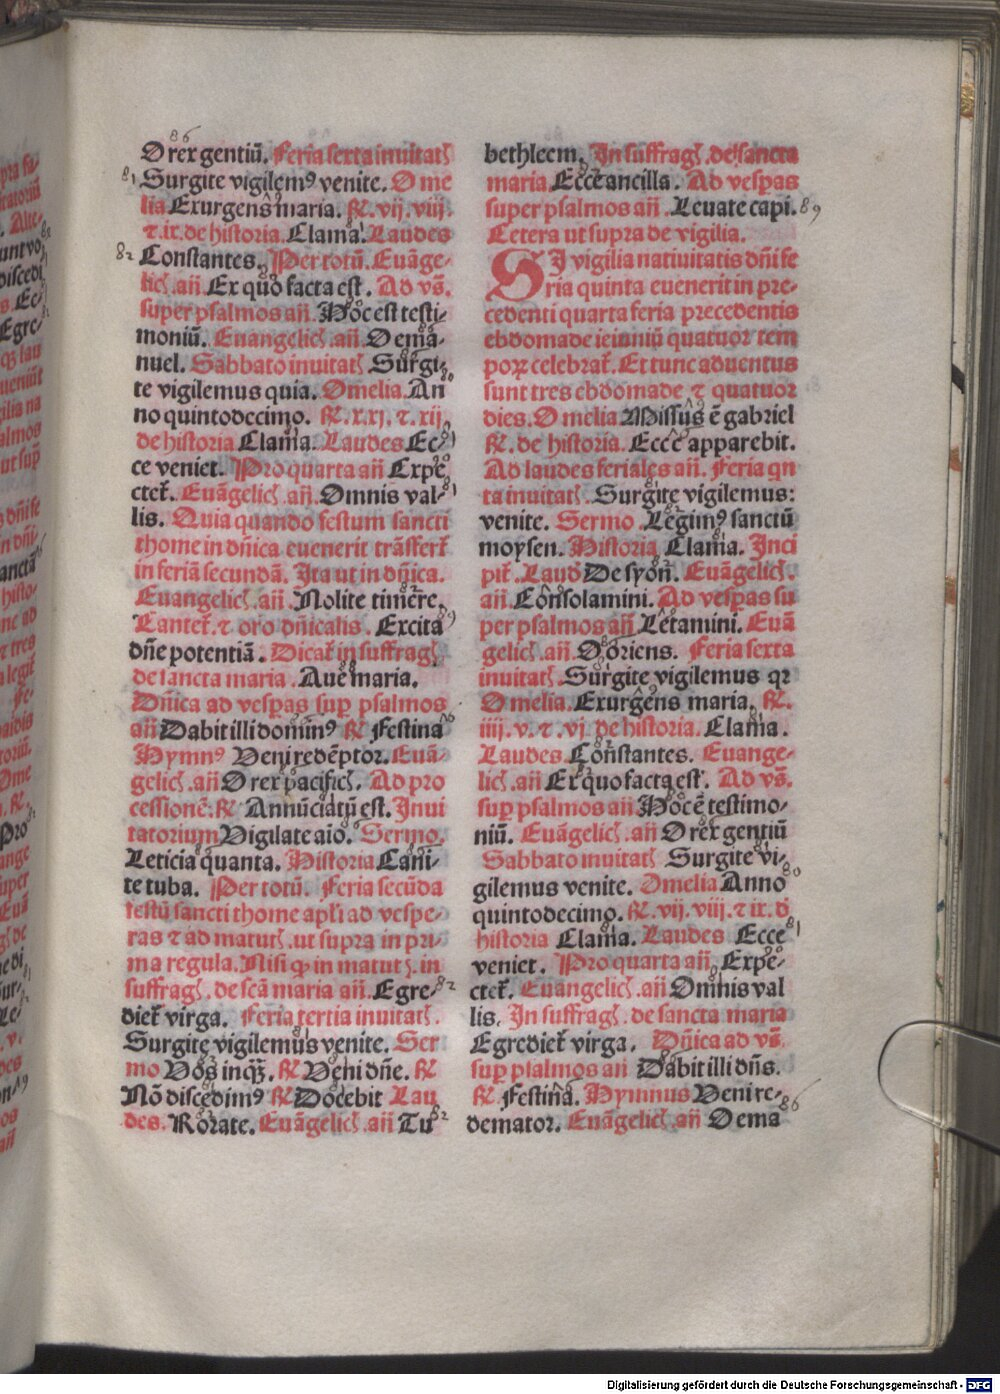 86
O rex gentiū. Feria sexta inuitatꝫ
81 Surgite vigilemꝰ venite. O me
lia Exurgens maria. ℟. vij. viij.
⁊. ix. de historia. Clama. Laudes
82 Constantes. Per totū. Euāge-
licꝫ .añ. Ex quo facta est. Ad vs̄.
super psalmos añ. Hoc est testi-
moniū. Euangelicꝫ .añ. O ema-
nuel. Sabbato inuitatꝫ Surgi-
te vigilemus quia. Omelia. An
no quintodecimo. ℟. x. xj. ⁊. xij.
de historia Clama. Laudes Ec-
ce veniet. Pro quarta añ Expe
ctet̄. Euāgelicꝫ .añ. Omnis val-
lis. Quia quando festum sancti
thome in dñica euenerit trāsfert̄
in feriā secundā. Ita ut in dñica.
Euangelicꝫ .añ. Nolite timere.
Cantet̄. ⁊ oro dñicalis. Excita
dñe potentiā. Dicat̄ in suffragꝫ
de sancta maria. Aue maria.
Dñica ad vesꝑas suꝑ psalmos
añ Dabit illi dominꝰ ℟ Festina
Hymnꝰ Veni redēptor. Euā-
gelicꝫ .añ O rex pacificꝫ. Ad pro
cessionē: ℟ Annūciatū est. Inui
tatorium Vigilate aīo. Sermo.
Leticia quanta. Historia Cani-
te tuba. Per totū. Feria secūda
festū sancti thome apl̄i ad vespe-
ras ⁊ ad matutꝫ .ut supra in pri-
ma regula. Nisi ꝙ in matutꝫ. in
suffragꝫ. de scā maria añ. Egre- 82
diet̄ virga. Feria tertia inuitatꝫ.
Surgite vigilemus venite. Ser
mo Vos inqꝫ. ℟ Veni dñe. ℟
Nō discedimꝰ ℟ Docebit Lau
des. Rorate. Euāgelicꝫ .añ Tu 82
bethleem. In suffragꝫ .de sancta
maria Ecce ancilla. Ad vesꝑas
super psalmos añ. Leuate capi. 89
Cetera ut supra de vigilia.
SI vigilia natiuitatis dñi fe
ria quinta euenerit in pre-
cedenti quarta feria precedentis
ebdomade ieiuniū quatuor tem
porꝝ celebrat̄. Et tunc aduentus
sunt tres ebdomade ⁊ quatuor
dies. O melia Missus ē gabriel
℟. de historia. Ecce apparebit.
Ad laudes feriales añ. Feria qn
ta inuitatꝫ. Surgite vigilemus:
venite. Sermo. Legimꝰ sanctū
moysen. Historia Clama. Inci
pit̄. Laud De syon. Euāgelicꝫ.
añ. Consolamini. Ad vesꝑas su
per psalmos añ. Letamini. Euā
gelicꝫ .añ. O oriens. Feria sexta
inuitatꝫ. Surgite vigilemus qꝛ
O melia. Exurgens maria. ℟.
iiij. v. ⁊. vj. de historia. Clama.
Laudes. Constantes. Euange-
licꝫ .añ Ex quo facta est. Ad vs̄.
suꝑ psalmos añ Hoc ē testimo-
niū. Euāgelicꝫ .añ O rex gentiū
Sabbato inuitatꝫ Surgite vi-
gilemus venite. Omelia Anno 80
quintodecimo. ℟. vij. viij. ⁊ ix. d̄
historia Clama. Laudes Ecce 81
veniet. Pro quarta añ. Expe-
ctet̄. Euangelicꝫ .añ Omnis val
lis. In suffragꝫ .de sancta maria
Egrediet̄ virga. Dñica ad vs̄.
suꝑ psalmos añ Dabit illi dñs.
℟. Festina. Hymnus Veni re-
demator. Euāgelicꝫ .añ O ema 86
Digitalisierung gefördert durch die Deutsche Forschungsgemeinschaft - DFG